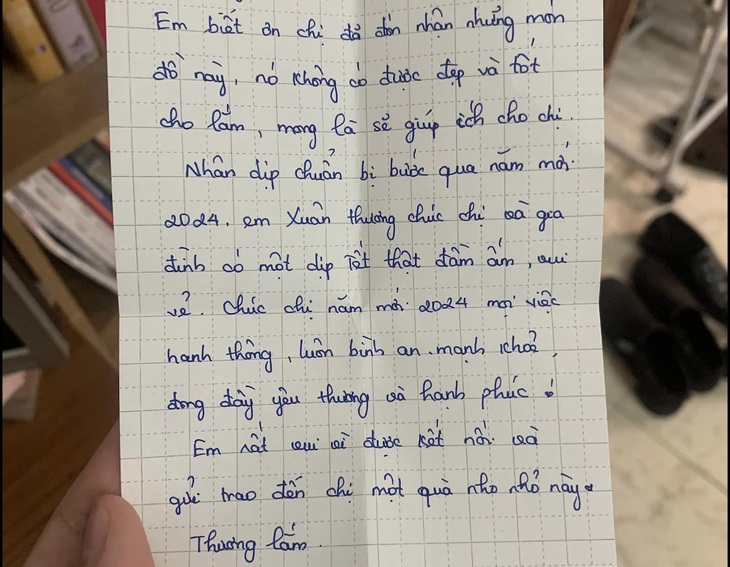 Em biết ơn chị đã đón nhận những món
đồ này, nó không có được đẹp và tốt
cho lắm, mong là sẽ giúp ích cho chị.
Nhân dịp chuẩn bị bước qua năm mới
2024, em Xuân thương chúc chị và gia
đình có một dịp Tết thật đầm ấm, vui
vẻ. Chúc chị năm mới 2024 mọi việc
hanh thông, luôn bình an, mạnh khoẻ,
đong đầy yêu thương và hạnh phúc!
Em rất vui vì được kết nối và
gửi trao đến chị một quà nho nhỏ này.
Thương lắm.